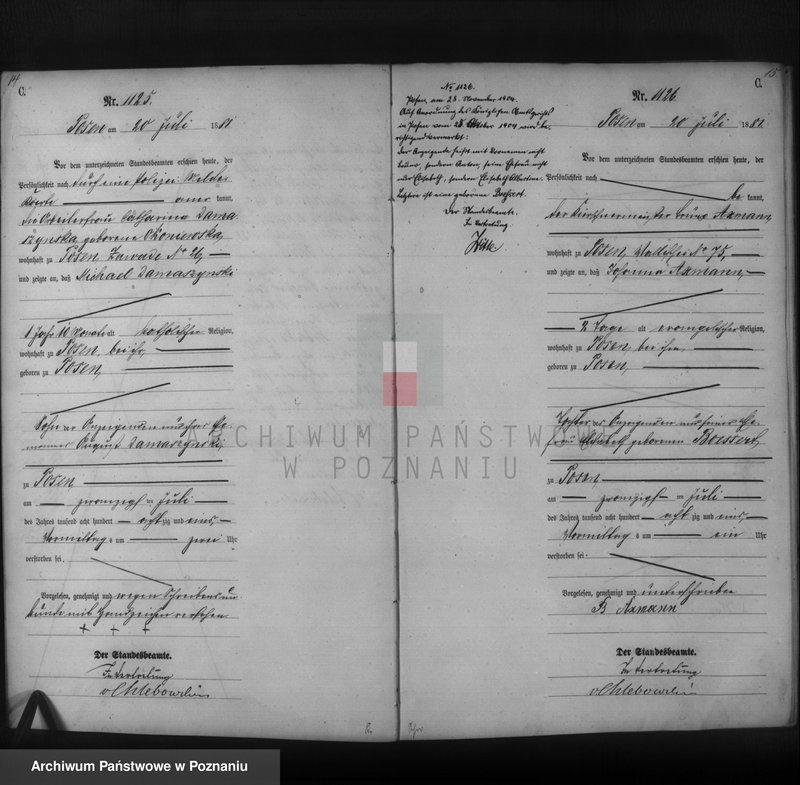 14
C.
Nr. 1125.
Posen am 20 Juli 1881.
Vor dem unterzeichneten Standesbeamten erschien heute, der
Persönlichkeit nach durch eine Polizei-Melde-
karte aner kannt,
die Arbeiterfrau Catharina Dama-
szynska geborene
wohnhaft zu Posen, Zawade No 26,
und zeigte an, daß Michael Damaszynski
1 Jahr 10 Monate alt katholischer Religion,
wohnhaft zu Posen, bei ihr,
geboren zu Posen,
Sohn der Anzeigenden und ihres Ehe-
mannes August Damaszynski,
zu Posen
am zwanzigsten Juli
des Jahres tausend acht hundert achtzig und eins,
Vormittags um zwei Uhr
verstorben sei.
Vorgelesen, genehmigt und wegen Schreibensun-
kunde mit Handzeichen versehen
+ + +
Der Standesbeamte.
In Vertretung
v Chlebowski
No 1126.
Posen, am 25. November 1904.
Auf Anordnung des Königlichen Amtsgerichts
in Posen vom Oktober 1904 wird be-
richtigend vermerkt:
Der Anzeigende heißt mit Vornamen nicht
Bruno, sondern Anton, seine Ehefrau nicht
nur Elisabeth, sondern Elisabeth Albertine.
Letztere ist eine geborene
Der Standesbeamte.
In Vertretung.
15
C.
Nr. 1126.
Posen am 20 Juli 1881.
Vor dem unterzeichneten Standesbeamten erschien heute, der
Persönlichkeit nach
be kannt,
der Kürschnermeister Bruno Axmann
wohnhaft zu Posen, Wallischei No 75,
und zeigte an, daß Johanna Axmann,
2 Tage alt evangelischer Religion,
wohnhaft zu Posen, bei ihm,
geboren zu Posen,
Tochter des Anzeigenden und seiner Ehe-
frau Elisabeth geborenen
zu Posen
am zwanzigsten Juli
des Jahres tausend acht hundert achtzig und eins,
Vormittags um ein Uhr
verstorben sei.
Vorgelesen, genehmigt und unterschrieben
B Axmann
Der Standesbeamte.
In Vertretung
v Chlebowski
ARCHIWUM PAŃSTWOWE
W POZNANIU
Archiwum Państwowe w Poznaniu